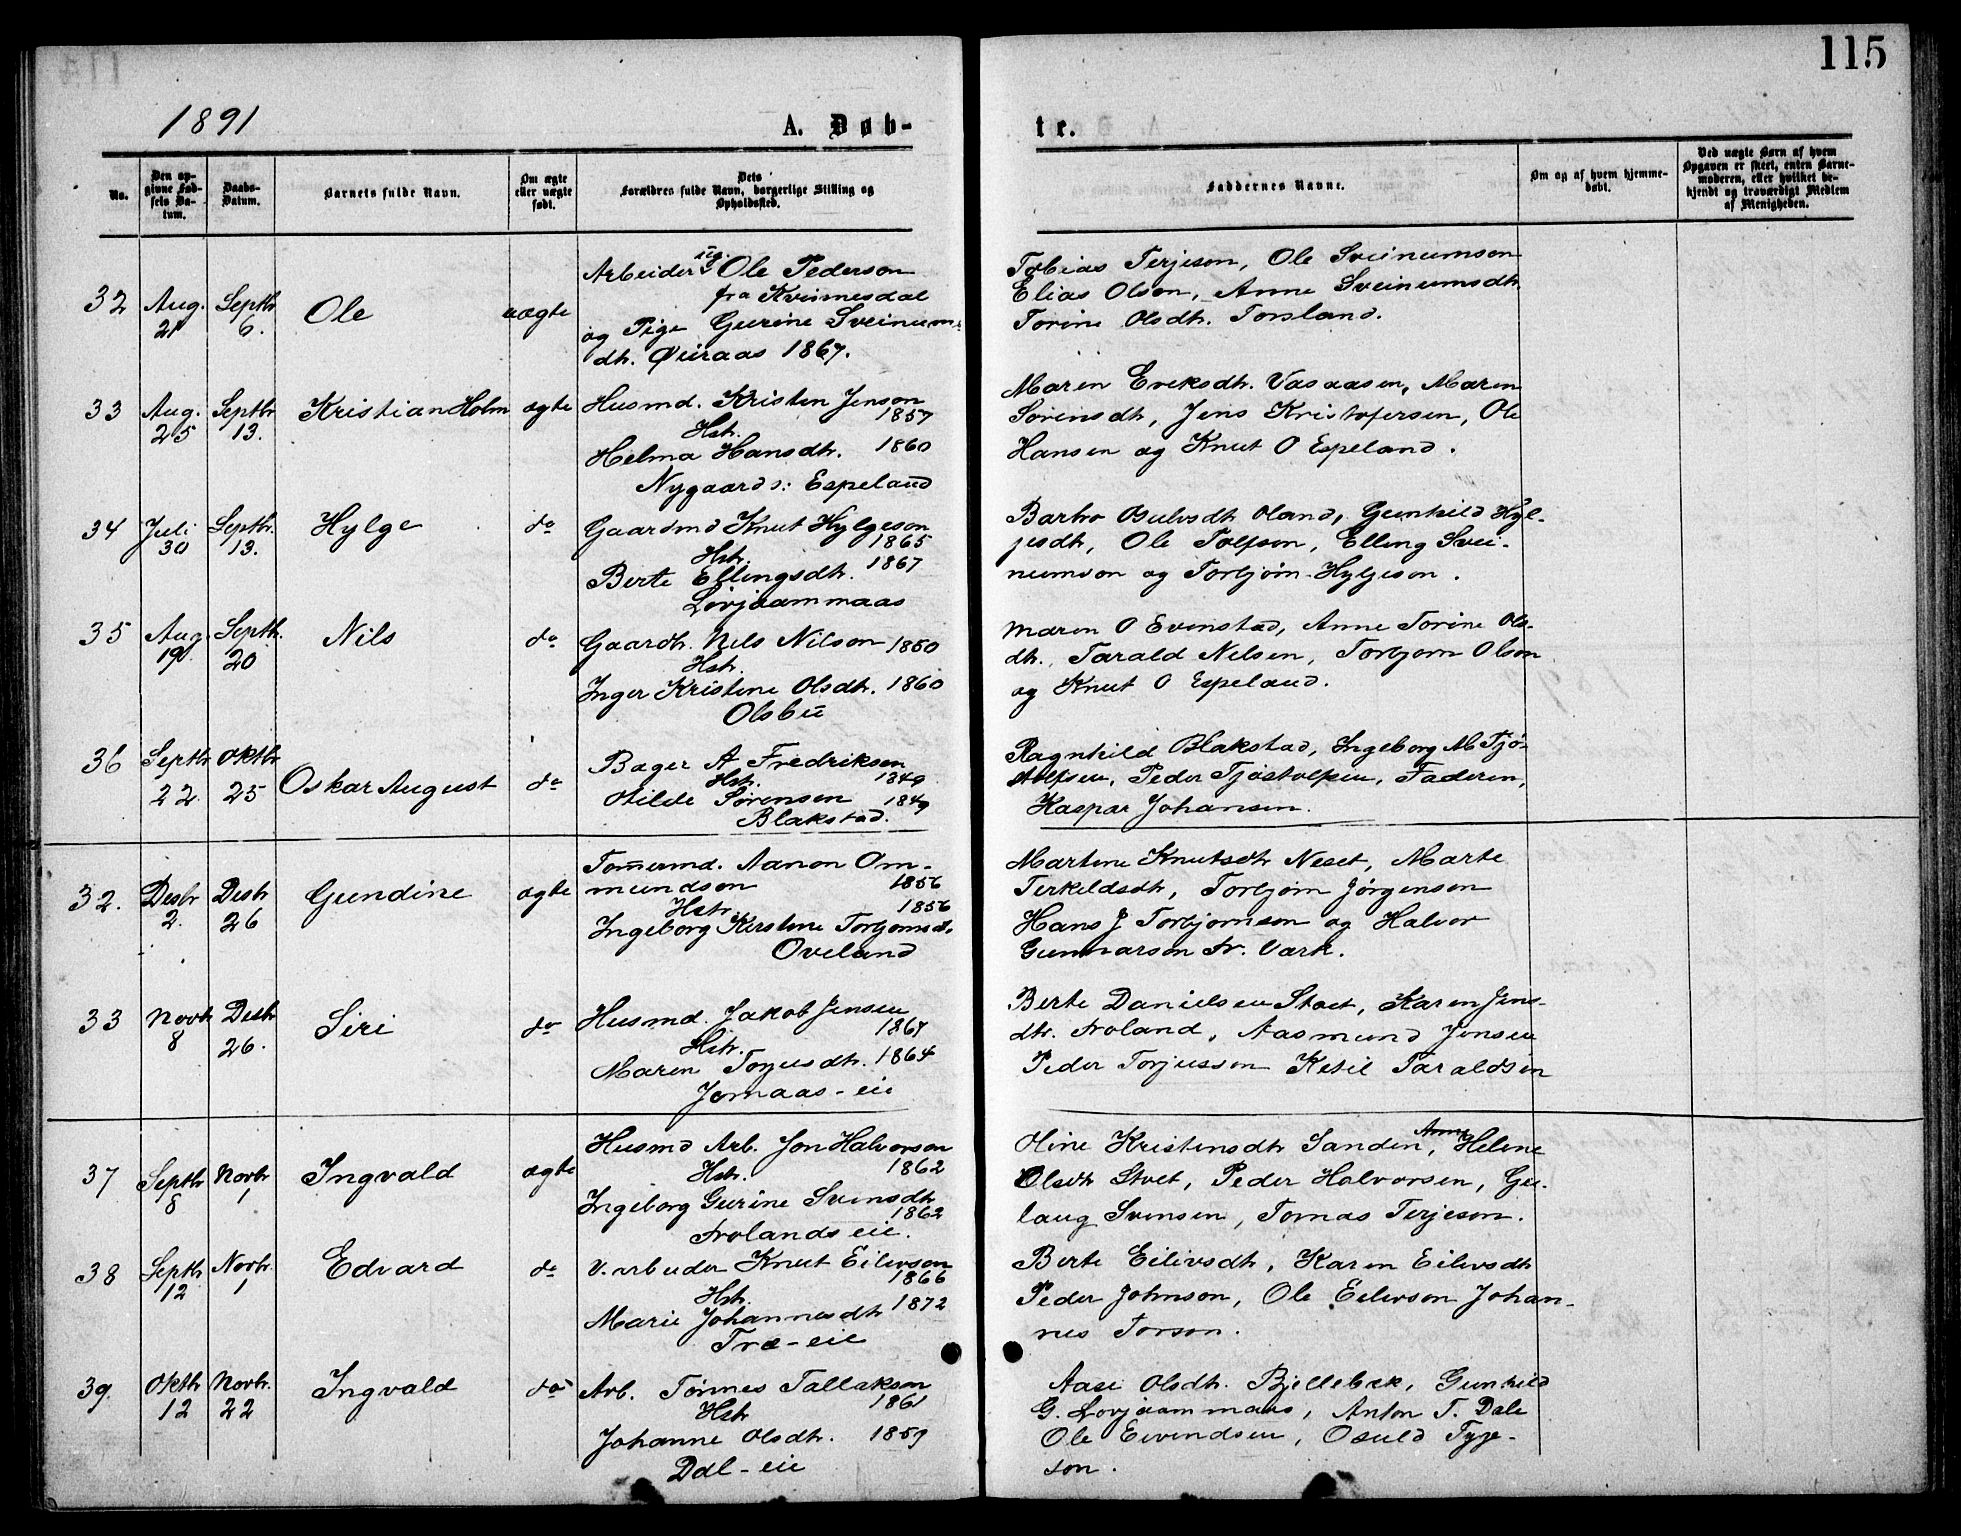 115
1891
A. Døb-
te.
No.
Den op-
givne Fød-
sels Da-
tum.
Daabs-
Datum.
Barnets fulde Navn.
Om ægte
eller uægte
født.
Dets
Forældres fulde Navn, borgerlige Stilling og
Opholdssted.
Faddernes Navne.
Om og af hvem hjemme-
døbt.
Ved uægte Børn af hvem
Opgaven er skeet, enten Barne-
moderen, eller hvilket be-
kjendt og troværdigt Medlem
af Menigheden.
32 Aug. 21 Septbr 6. Ole uægte
Arbeider Ole Pederson
fra Kvinnesdal
og Pige Gurine Sveinum-
dt. Øiuraas 1867.
Tobias Terjeson, Ole Sveinumson
Elias Olson, Anne Sveinumsdt.
Torine Olsdt. Torsland.
33 Aug. 25 Septbr 13. Kristian Holm ægte
Husmd. Kristen Jenson
1857
Hst.
Helma Hansdt. 1860
Nygaards: Espeland
Maren Eriksdt. Vasaasen, Maren
Sørensdt, Jens Kristofersen, Ole
Hansen og Knut O Espeland.
34 Juli 30 Septbr. 13. Hylge do
Gaardmd Knut Hylgeson
1865
Hst.
Berte Ellingsdt. 1867
Løvjaammaas
Barbro Osulvsdt Oland, Gunhild Hyl-
jesdt, Ole Tolfson, Elling Svei-
numson og Torbjørn Hylgeson.
35 Aug. 19 Septbr. 20 Nils do
Gaardb. Nils Nilson 1850
Hst.
Inger Kristine Olsdt. 1860
Olsbu
Maren O Evenstad, Anne Torine Ols-
dt. Tarald Nilsen, Torbjorn Olson
og Knut O Espeland.
36 Septbr 22. Oktbr 25 Oskar August do
Bager A Fredriksen
Hst. 1849
Otilde Sørensen 1849
Blakstad.
Ragnhild Blakstad, Ingeborg M Tjø-
stolfsen, Peder Tjøstolfsen, Faderen,
Kaspar Johansen.
32. Desbr 2. Desbr 26 Gundine ægte
Tømermd. Aanon Om-
mundson 1856
Hst. 1856
Ingeborg Kirstine Torbjornsdt.
Oveland
Martine Knutsdt Neset, Marte
Terkildsdt, Torbjørn Jørgenson
Hans J Torbjornson og Halvor
Gunnarson Fr. Værk.
33 Novbr 8 Desbr 26. Siri do
Husmd. Jakob Jensen
1867
Hst.
Maren Torjusdt. 1864
Jomaas-eie
Berte Danielsen Stoet, Karen Jens-
dt. Froland, Aasmund Jensen
Peder Torjusson Ketil Taraldsen
37 Septbr 8 Novbr 1 Ingvald ægte
Husmd Arb. Jon Halvorson
Hst. 1862
Ingeborg Gurine Svensdt
1862
Frolands eie.
Oline Kristensdt Sanden, Anne Helene
Olsdt Stoet, Peder Halvorsen, Gu-
laug Svensen, Tomas Terjeson.
38 Septbr 12 Novbr. 1 Edvard do
V. arbeider Knut Eilevson
1866
Hst.
Marie Johannesdt 1872
Træ-eie
Berte Eilivsdt, Karen Eilevsdt
Peder Johnson, Ole Eilevson Johan-
nes Torson.
39. Oktbr 12 Novbr. 22 Ingvald do
Arb. Tønnes Tallakson
1861
Hst
Johanne Olsdt. 1859
Ddl-eie
Aase Olsdt. Bjellebæk, Gunhild
G. Lovjaammaas, Anton T. Dale
Ole Eivendsen, Osuld Tyge-
son.